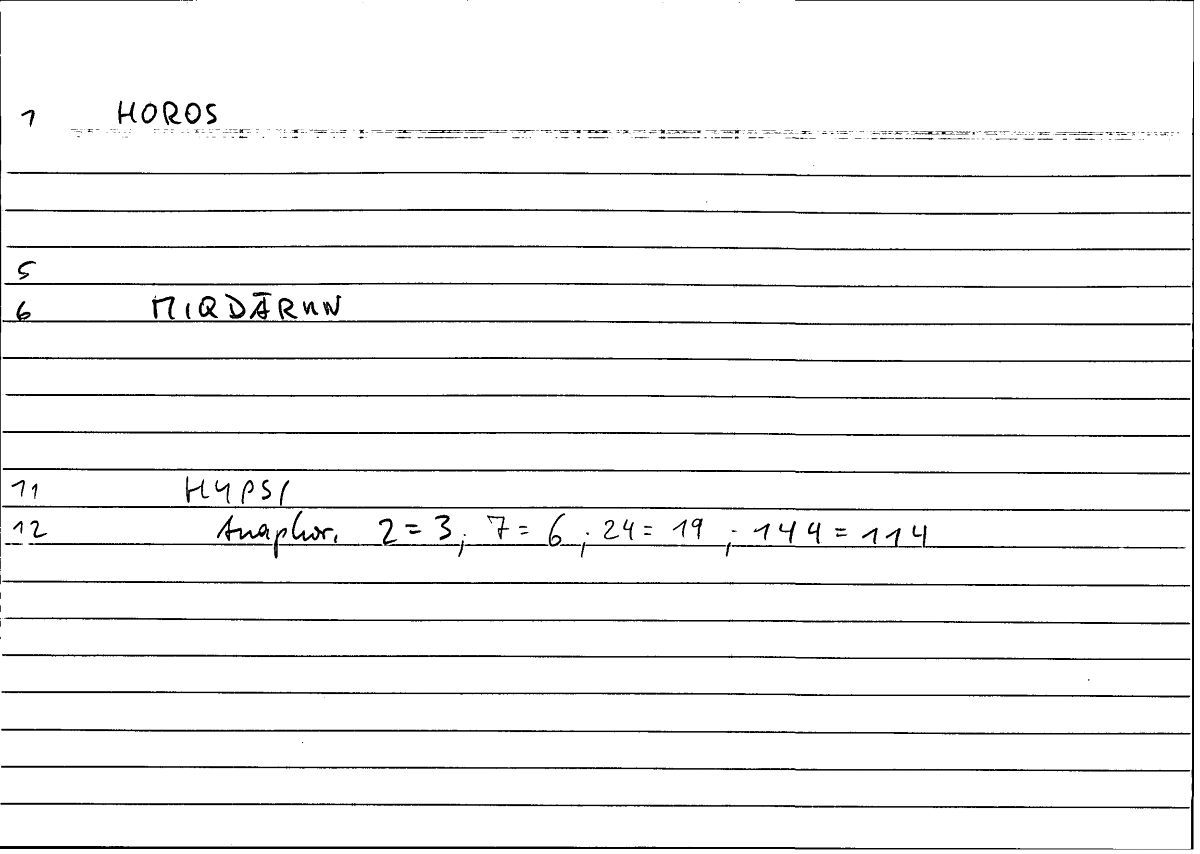 1 HOROS
5
6 MIQDĀRUN
11 HYPSI
12 Anaphor. 2 = 3; 7 = 6; 24 = 19; 144 = 114